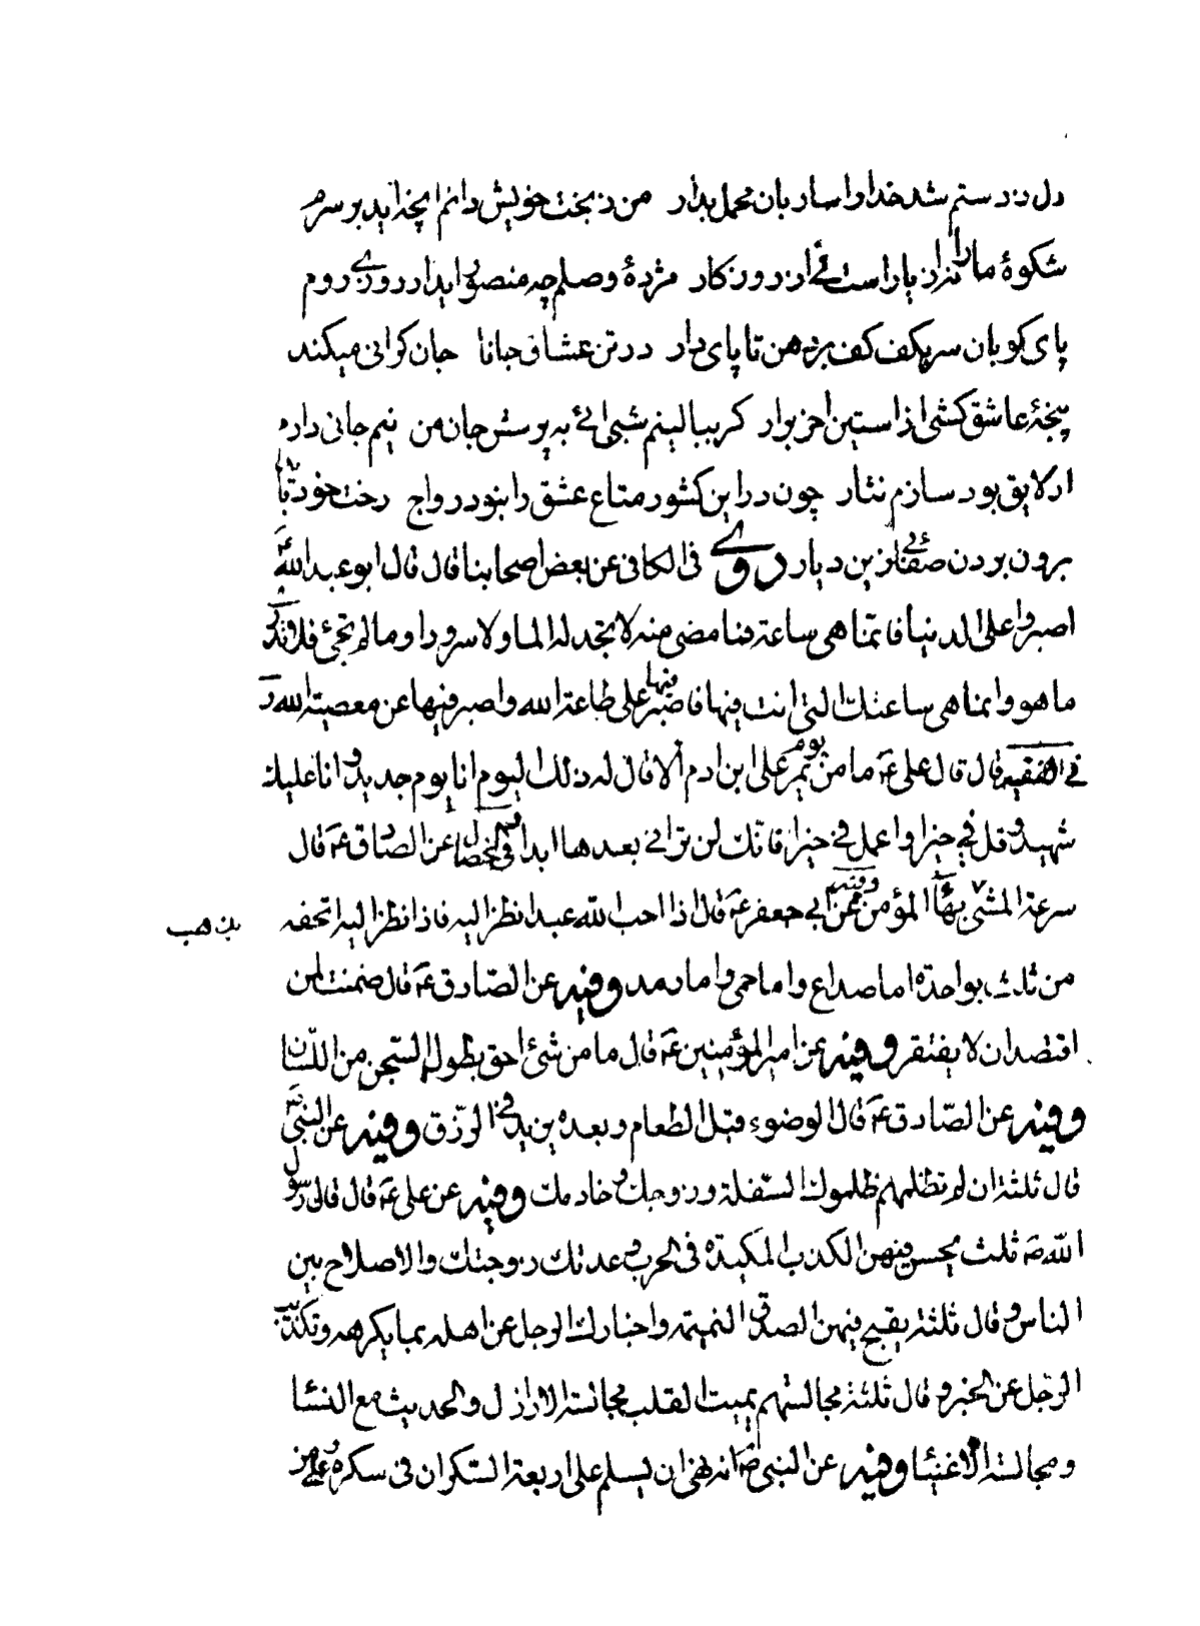 دل ز دستم شد خدا را ساربان محمل بدار من ز بخت خویش دانم آنچه آید بر سرم
شکوهٔ ما را نه از یار است نی از روزکار مژدهٔ وصلم چه منصور ار روزی روم
پای کوبان سر بکف کف بر دهن تا پای دار در تن عشاق جانا جان کرانی میکند
پنجهٔ عاشق کشی از استین اخر برار کر ببالینم شبی ائی به پرسش جان من نیم جانی دارم
ار لایق بود سازم نثار چون در این کشور متاع عشق را نبود رواج رخت خود باید
برون بردن صفائی زین دیار روی فی الکافی عن بعض اصحابنا قال قال ابو عبد الله ع
اصبروا علی الدنیا فانما هی ساعة فما مضی منه لا تجد له الما ولا سرورا وما لم تجئ فلا تدری
ما هو وانما هی ساعتك التی انت فیها فاصبر فیها علی طاعة الله واصبر فیها عن معصیة الله و
فی الفقیه قال قال علی ع ما من یوم یمر علی ابن ادم الا قال له ذلك الیوم انا یوم جدید وانا علیك
شهید وقل فی خیرا واعمل فی خیرا فانك لن ترانی بعدها ابدا فی الخصال عن الصادق ع قال
سرعة المشی بهاء المؤمن وفیه عن ابی جعفر ع قال اذا احب الله عبدا نظر الیه فاذا نظر الیه اتحفه
یذهب
من ثلث بواحدة اما صداع واما حمی واما رمد وفیه عن الصادق ع قال ضمنت لمن
اقتصد ان لا یفتقر وفیه عن امیر المؤمنین ع قال ما من شئ احق بطول السجن من اللسان
وفیه عن الصادق ع قال الوضوء قبل الطعام وبعده یزید فی الرزق وفیه عن النبی ص
قال ثلثة ان لم تظلمهم ظلموك السفلة وزوجك وخادمك وفیه عن علی ع قال قال رسول
الله ص ثلث یحسن فیهن الکذب المکیدة فی الحرب وعدتك زوجتك والاصلاح بین
الناس وقال ثلثة یقبح فیهن الصدق النمیمة واخبارك الرجل عن اهله بما یکرهه وتکذیب
الرجل عن الخبر و قال ثلثة مجالستهم یمیت القلب مجالسة الارازل والحدیث مع النساء
ومجالسة الاغنیاء وفیه عن النبی ص انه نهی ان یسلم علی اربعة السکران فی سکره وعلی من